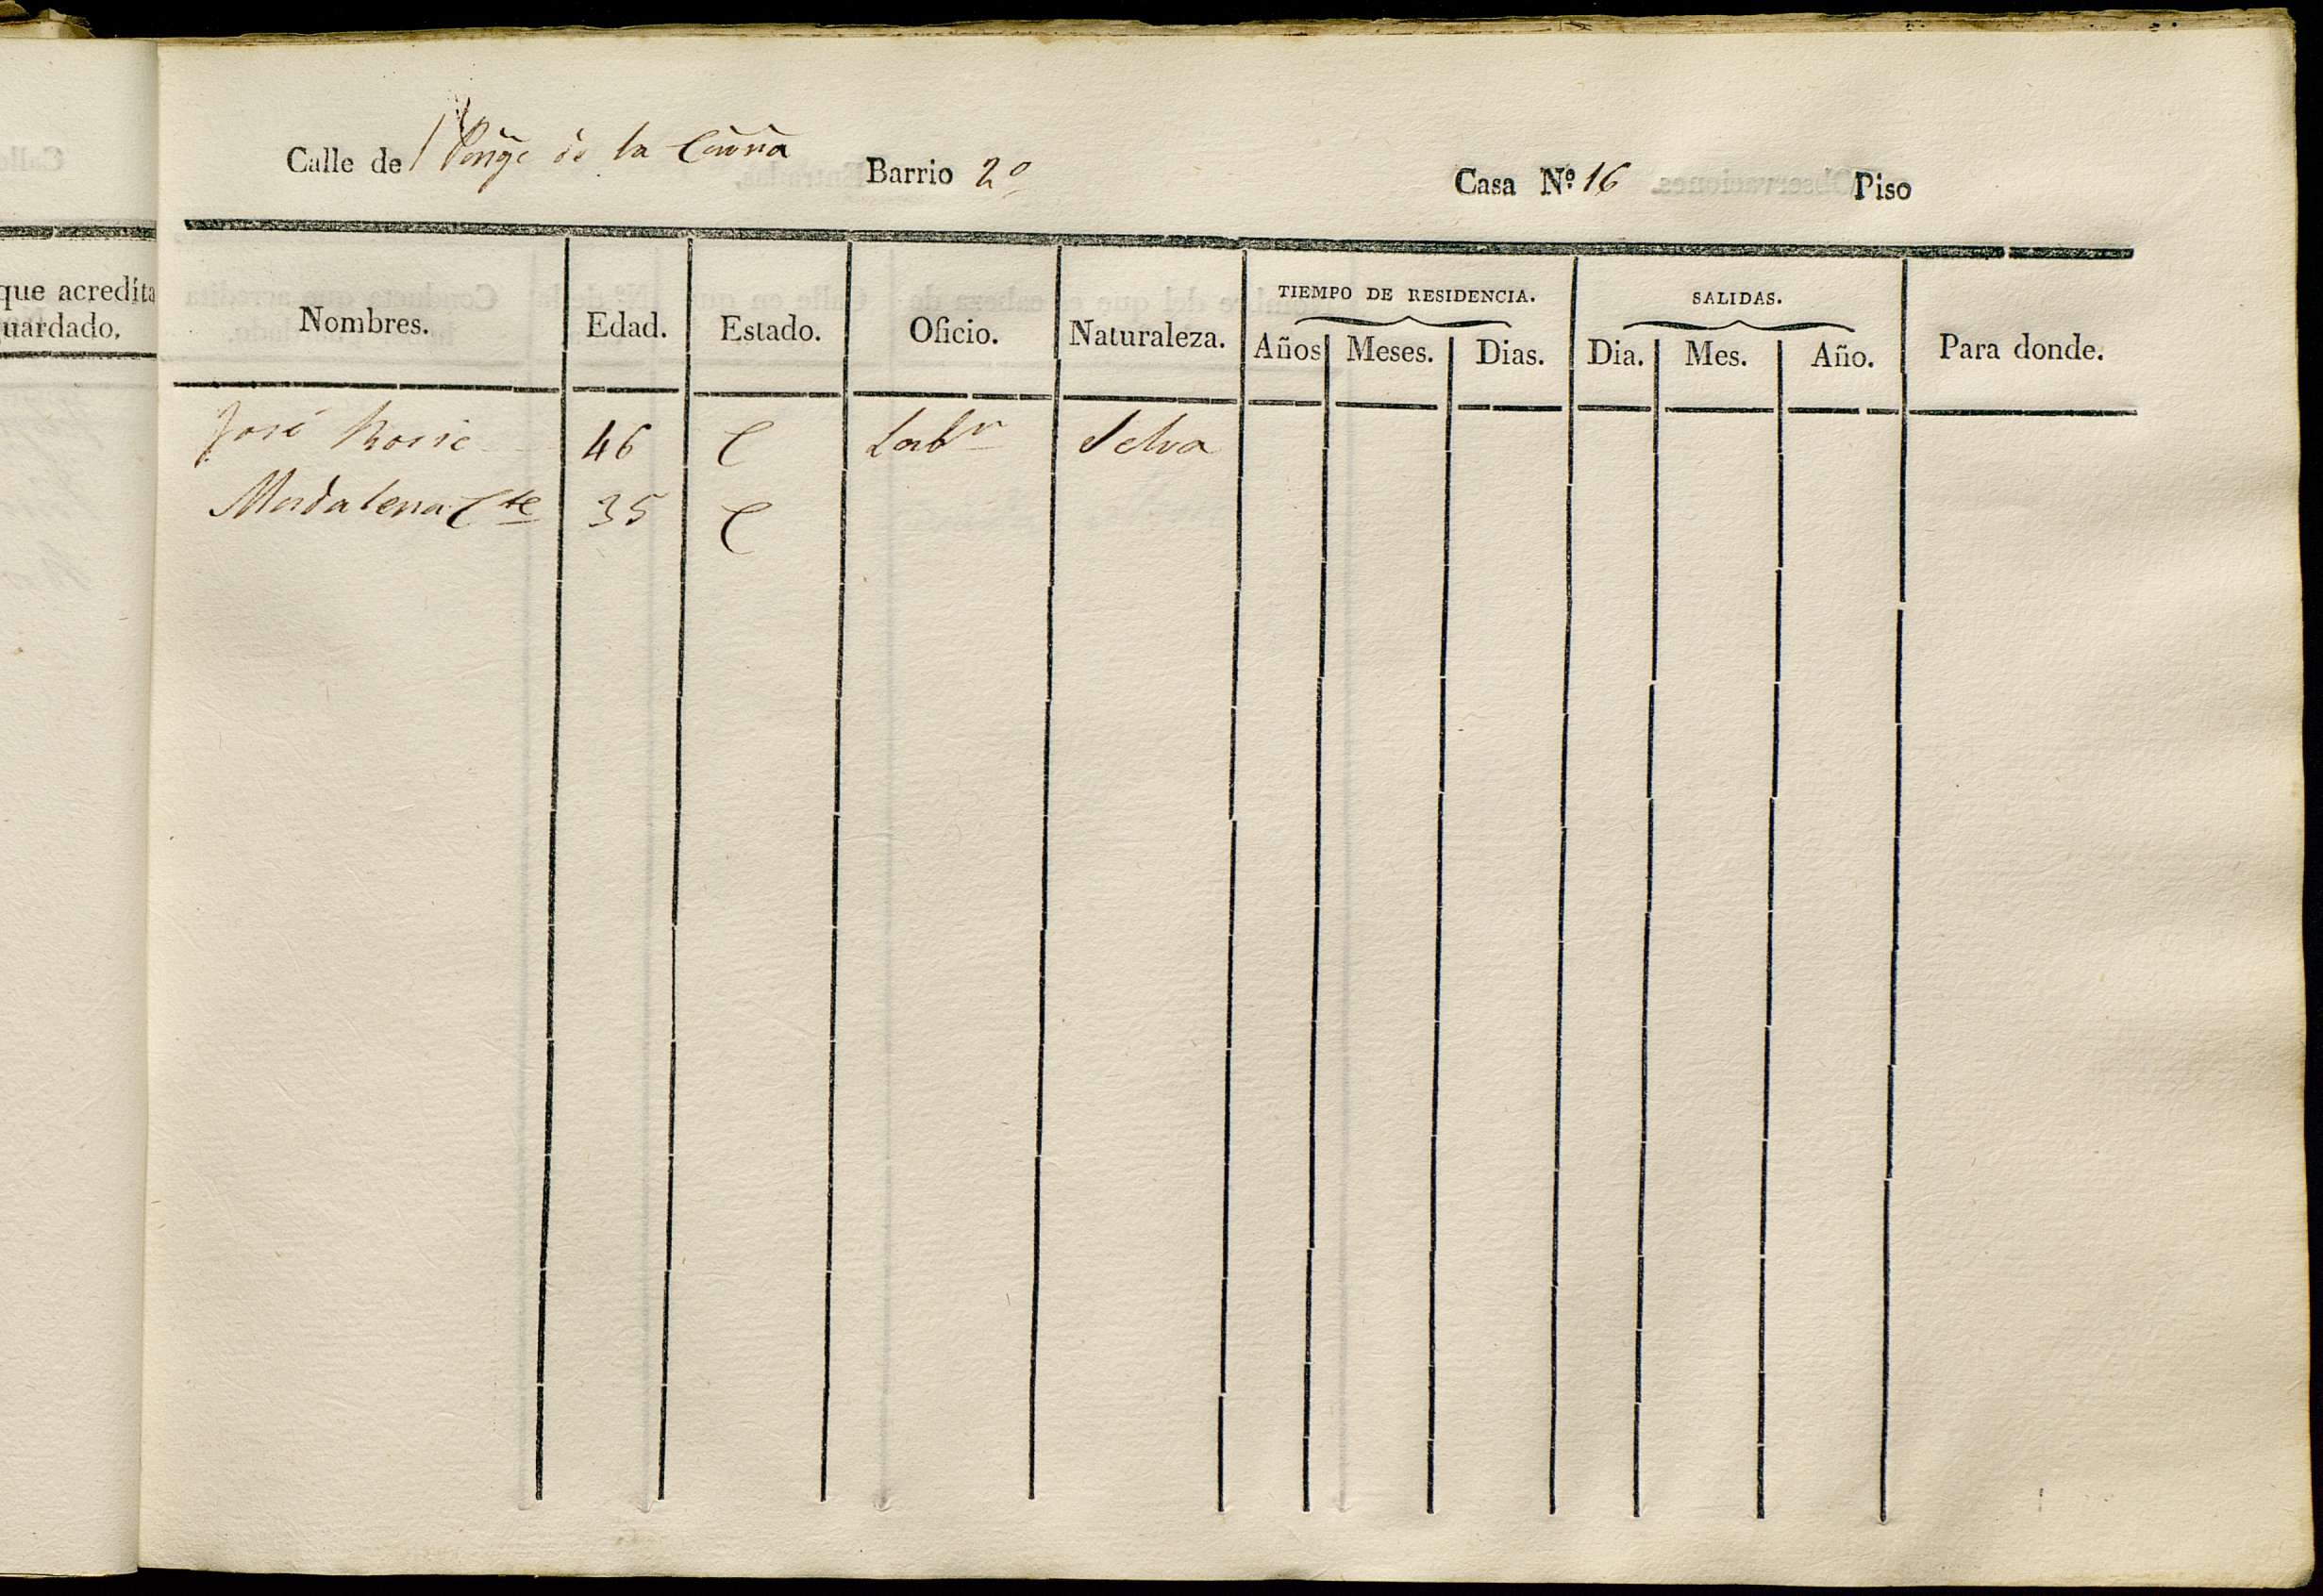 que acredita
uardado.
Calle de de la Barrio 2º Casa Nº 16 Piso
Nombres. Edad. Estado. Oficio. Naturaleza. TIEMPO DE RESIDENCIA. SALIDAS. Para donde.
Años Meses. Dias. Dia. Mes. Año.
José 46 C Labr Selva
Madalena Cte 35 C